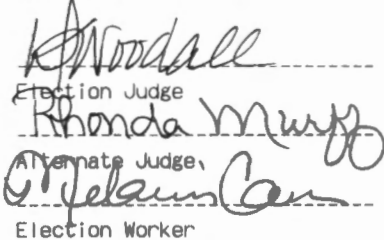 Woodall
Election Judge
Rhonda Murff
Alternate Judge
Election Worker